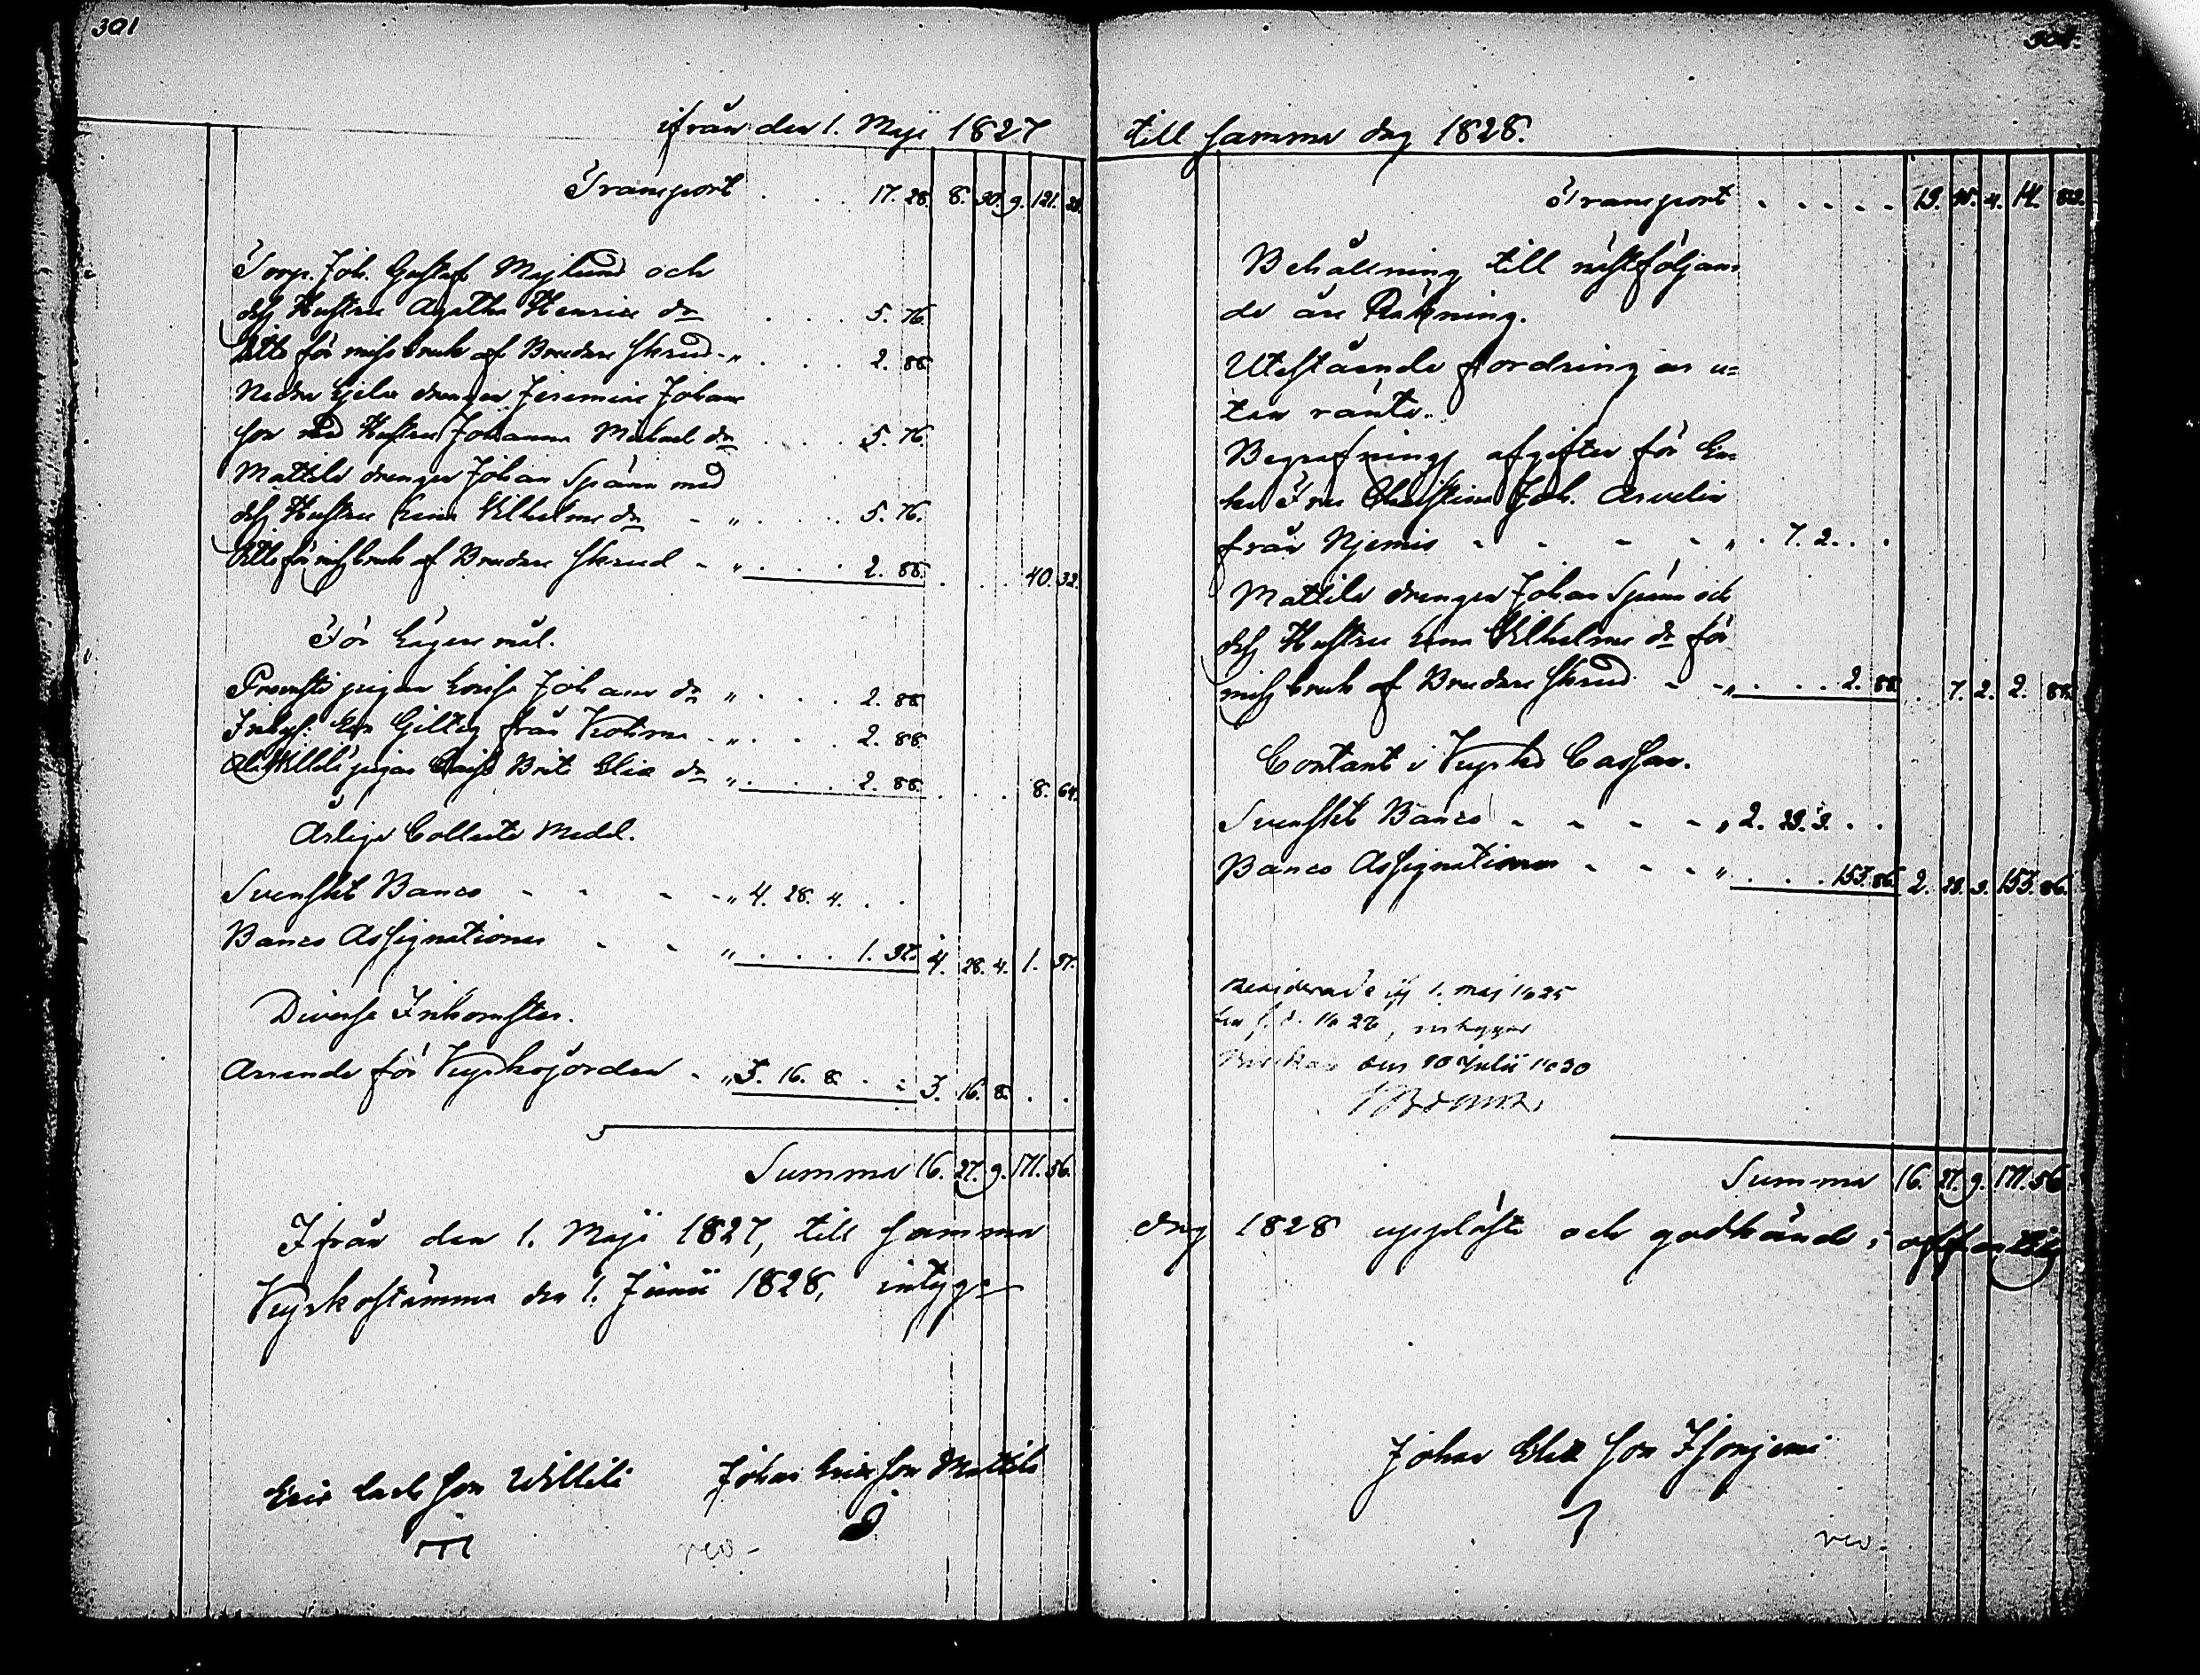 301
ifrån den 1. Maji 1827
Transport . . . 17. 28. 8. 30. 9. 121. 28.
Torp. Joh. Gustaf Majlund och
dess Hustru Agatha Henrics dr . . . 5. 76.
Ditto för missbruk af Brudeskrud " . . . 2. 88.
Nedre drengen Jeremias Johans
son med Hustru Johanna Mikael dr . . . 5. 76.
Mattila drengen Johan Spänn med
dess Hustru Lena Wilhelms dr - " . . . 5. 76.
Ditto för missbruk af Brudeskrud - " . . . 2. 88. . . . 40. 32.
För Lägersmål.
Prowsti pigan Lovisa Johans dr " . . . 2. 88
Inhys: från - " . . . 2. 88
pigan Caisa Brita Elias dr " . . . 2. 88. . . . 8. 64.
Årliga Collecte Medel.
Svenskt Banco - - - - " 4. 28. 4. . .
Banco Assignationer - - " . . . 1. 32. 4. 28. 4. 1. 32.
Diverse Inkomster.
Arrende för Kyrkojorden - " 3. 16. 8. . . 3. 16. 8. . .
Summa 16. 27. 9. 171. 56.
Ifrån den 1. Maji 1827, till samma
Kyrkostämma den 1. Junii 1828, intyga
Eric son Willilä Johan Ericsson Mattila
rev.
301.
till samma dag 1828.
Transport . . . . . 13. 45. 4. 14. 82.
Behållning till nästföljan
de års Räkning.
Utestående fordringar u=
tan ränta.
Begrafnings afgifter för En=
ke Fru Christina Joh. Arvelin
från Njemis - - - - " . 7. 2. . .
Mattila drengen Johan Spänn och
dess Hustru Lena Wilhelms dr för
missbruk af Brudeskrud - - " . . . 2. 88. . 7. 2. 2. 88.
Contant i Kyrko Cassan.
Svenskt Banco - - - - " 2. 23. 3. . .
Banco Assignationer - - - " . . . 153. 86. 2. 23. 3. 153. 86.
1. maj 1825
1828,
den 10 Julii 1830
Summa 16. 27. 9. 171. 56.
dag 1828 uppläste och godkände i offentlig
Johan Elia son
rev.